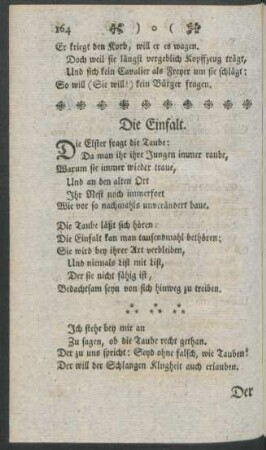 164 ) o (
Er kriegt den Korb, will er es wagen.
Doch weil sie längst vergeblich Kopffzeug trägt,
Und sich kein Cavalier als Freyer um sie schlägt:
So will (Sie will!) kein Bürger fragen.
Die Einfalt.
Die Elster fragt die Taube:
Da man ihr ihre Jungen immer raube,
Warum sie immer wieder traue,
Und an den alten Ort
Ihr Nest noch immerfort
Wie vor so nachmahls unverändert baue.
Die Taube läßt sich hören:
Die Einfalt kan man tausendmahl bethören;
Sie wird bey ihrer Art verbleiben,
Und niemals List mit List,
Der sie nicht fähig ist,
Bedachtsam seyn von sich hinweg zu treiben.
Ich stehe bey mir an
Zu sagen, ob die Taube recht gethan.
Der zu uns spricht: Seyd ohne falsch, wie Tauben!
Der will der Schlangen Klugheit auch erlauben.
Der